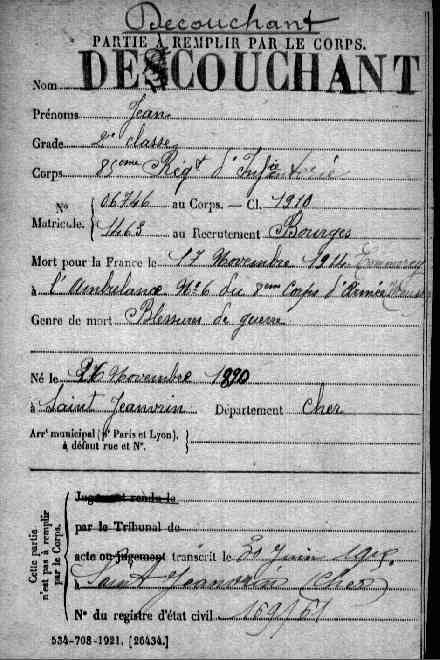 Decouchant
PARTIE À REMPLIR PAR LE CORPS.
Nom DESCOUCHANT
Prénoms Jean
Grade 2e classe
Corps 85eme Régt d'Infanterie
No Matricule. { 06746 au Corps. — Cl. 1910
1463 au Recrutement Bourges
Mort pour la France le 17 Novembre 1914 Commercy
à l'Ambulance No 6 du 8eme Corps d'Armée (Meuse)
Genre de mort Blessures de guerre
Né le 26 Novembre 1890
à Saint Jeanvrin Département Cher
Arrt municipal (pr Paris et Lyon),
à défaut rue et No.
Cette partie n'est pas à remplir par le Corps.
Jugement rendu le
par le Tribunal de
acte ou jugement transcrit le Juin
à Saint Jeanvrin (Cher)
No du registre d'état civil 169/61
534-708-1921. [26434.]